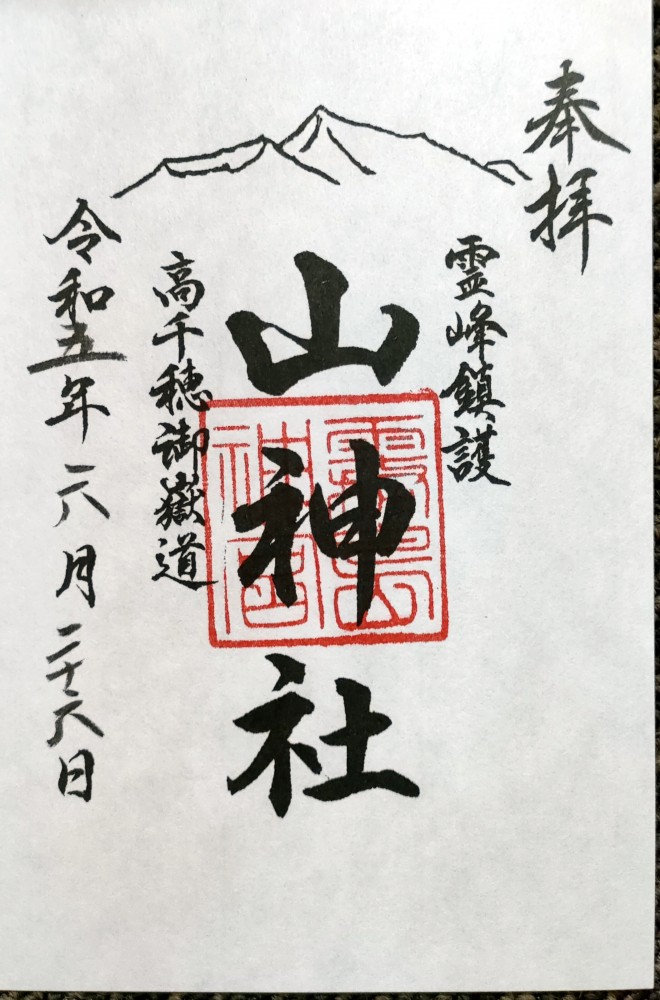 奉拝
霊峰鎮護
山神社
霧島神宮
高千穂御嶽道
令和五年六月二十六日